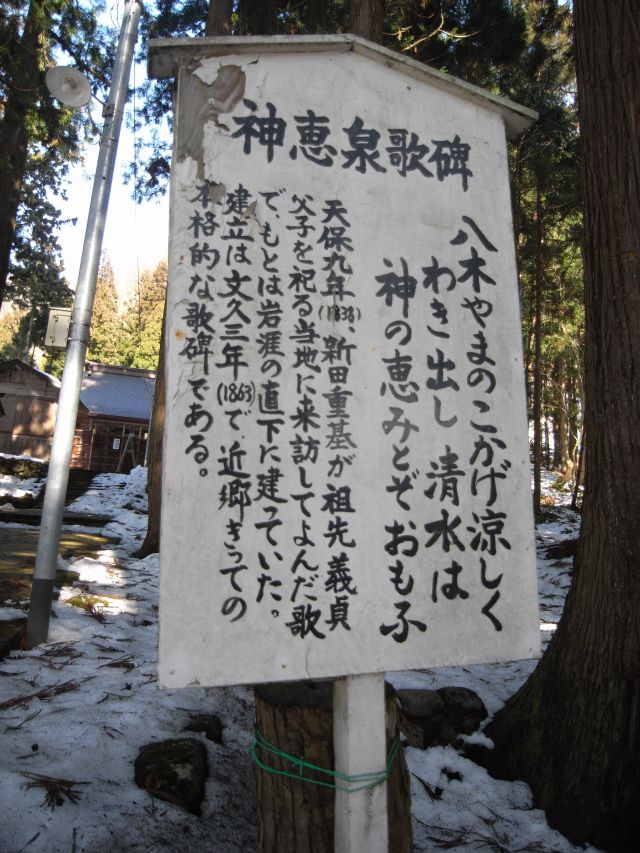 神恵泉歌碑
八木やまのこかげ涼しく
わき出し清水は
神の恵みとぞおもふ
天保九年(1838)、新田重基が祖先義貞
父子を祀る当地に来訪してよんだ歌
で、もとは岩涯の直下に建っていた。
建立は文久三年(1863)で、近郷きっての
本格的な歌碑である。